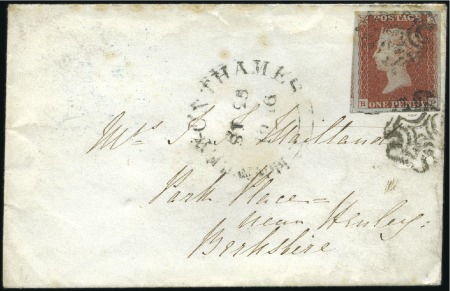 POSTAGE
ONE PENNY
THAMES
Mrs Maitland
Park Place
near Henley
Berkshire